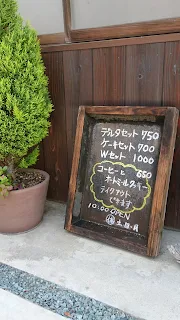 デルタセット 750
ケーキセット 700
Wセット 1000
コーヒーと 650
ホットミルクティー
テイクアウト
できます
10:00 OPEN
土・日・月